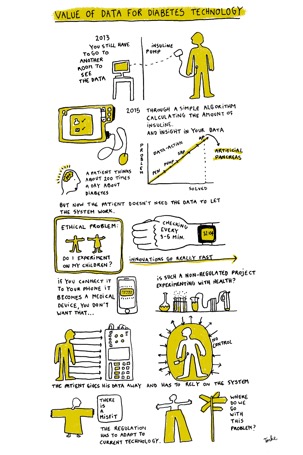 VALUE OF DATA FOR DIABETES TECHNOLOGY
2013
YOU STILL HAVE
TO GO TO
ANOTHER
ROOM TO
SEE
THE DATA
INSULINE
PUMP
2015 THROUGH A SIMPLE ALGORITHM
CALCULATING THE AMOUNT OF
INSULINE.
AND INSIGHT IN YOUR DATA
PROBLEM
DATA-ACTION
PEN
PUMP
ARTIFICIAL
PANCREAS
SOLVED
A PATIENT THINKS
ABOUT 200 TIMES
A DAY ABOUT
DIABETES
BUT NOW THE PATIENT DOESN'T NEED THE DATA TO LET
THE SYSTEM WORK.
ETHICAL PROBLEM:
DO I EXPERIMENT
ON MY CHILDREN?
CHECKING
EVERY
3-6 MIN.
INNOVATIONS GO REALLY FAST
IF YOU CONNECT IT
TO YOUR PHONE IT
BECOMES A MEDICAL
DEVICE, YOU DON'T
WANT THAT...
IS SUCH A NON-REGULATED PROJECT
EXPERIMENTING WITH HEALTH?
NO
CONTROL
THE PATIENT GIVES HIS DATA AWAY AND HAS TO RELY ON THE SYSTEM
THERE
IS A
MISFIT
THE REGULATION
HAS TO ADAPT TO
CURRENT TECHNOLOGY.
WHERE
DO WE
GO
WITH
THIS
PROBLEM?